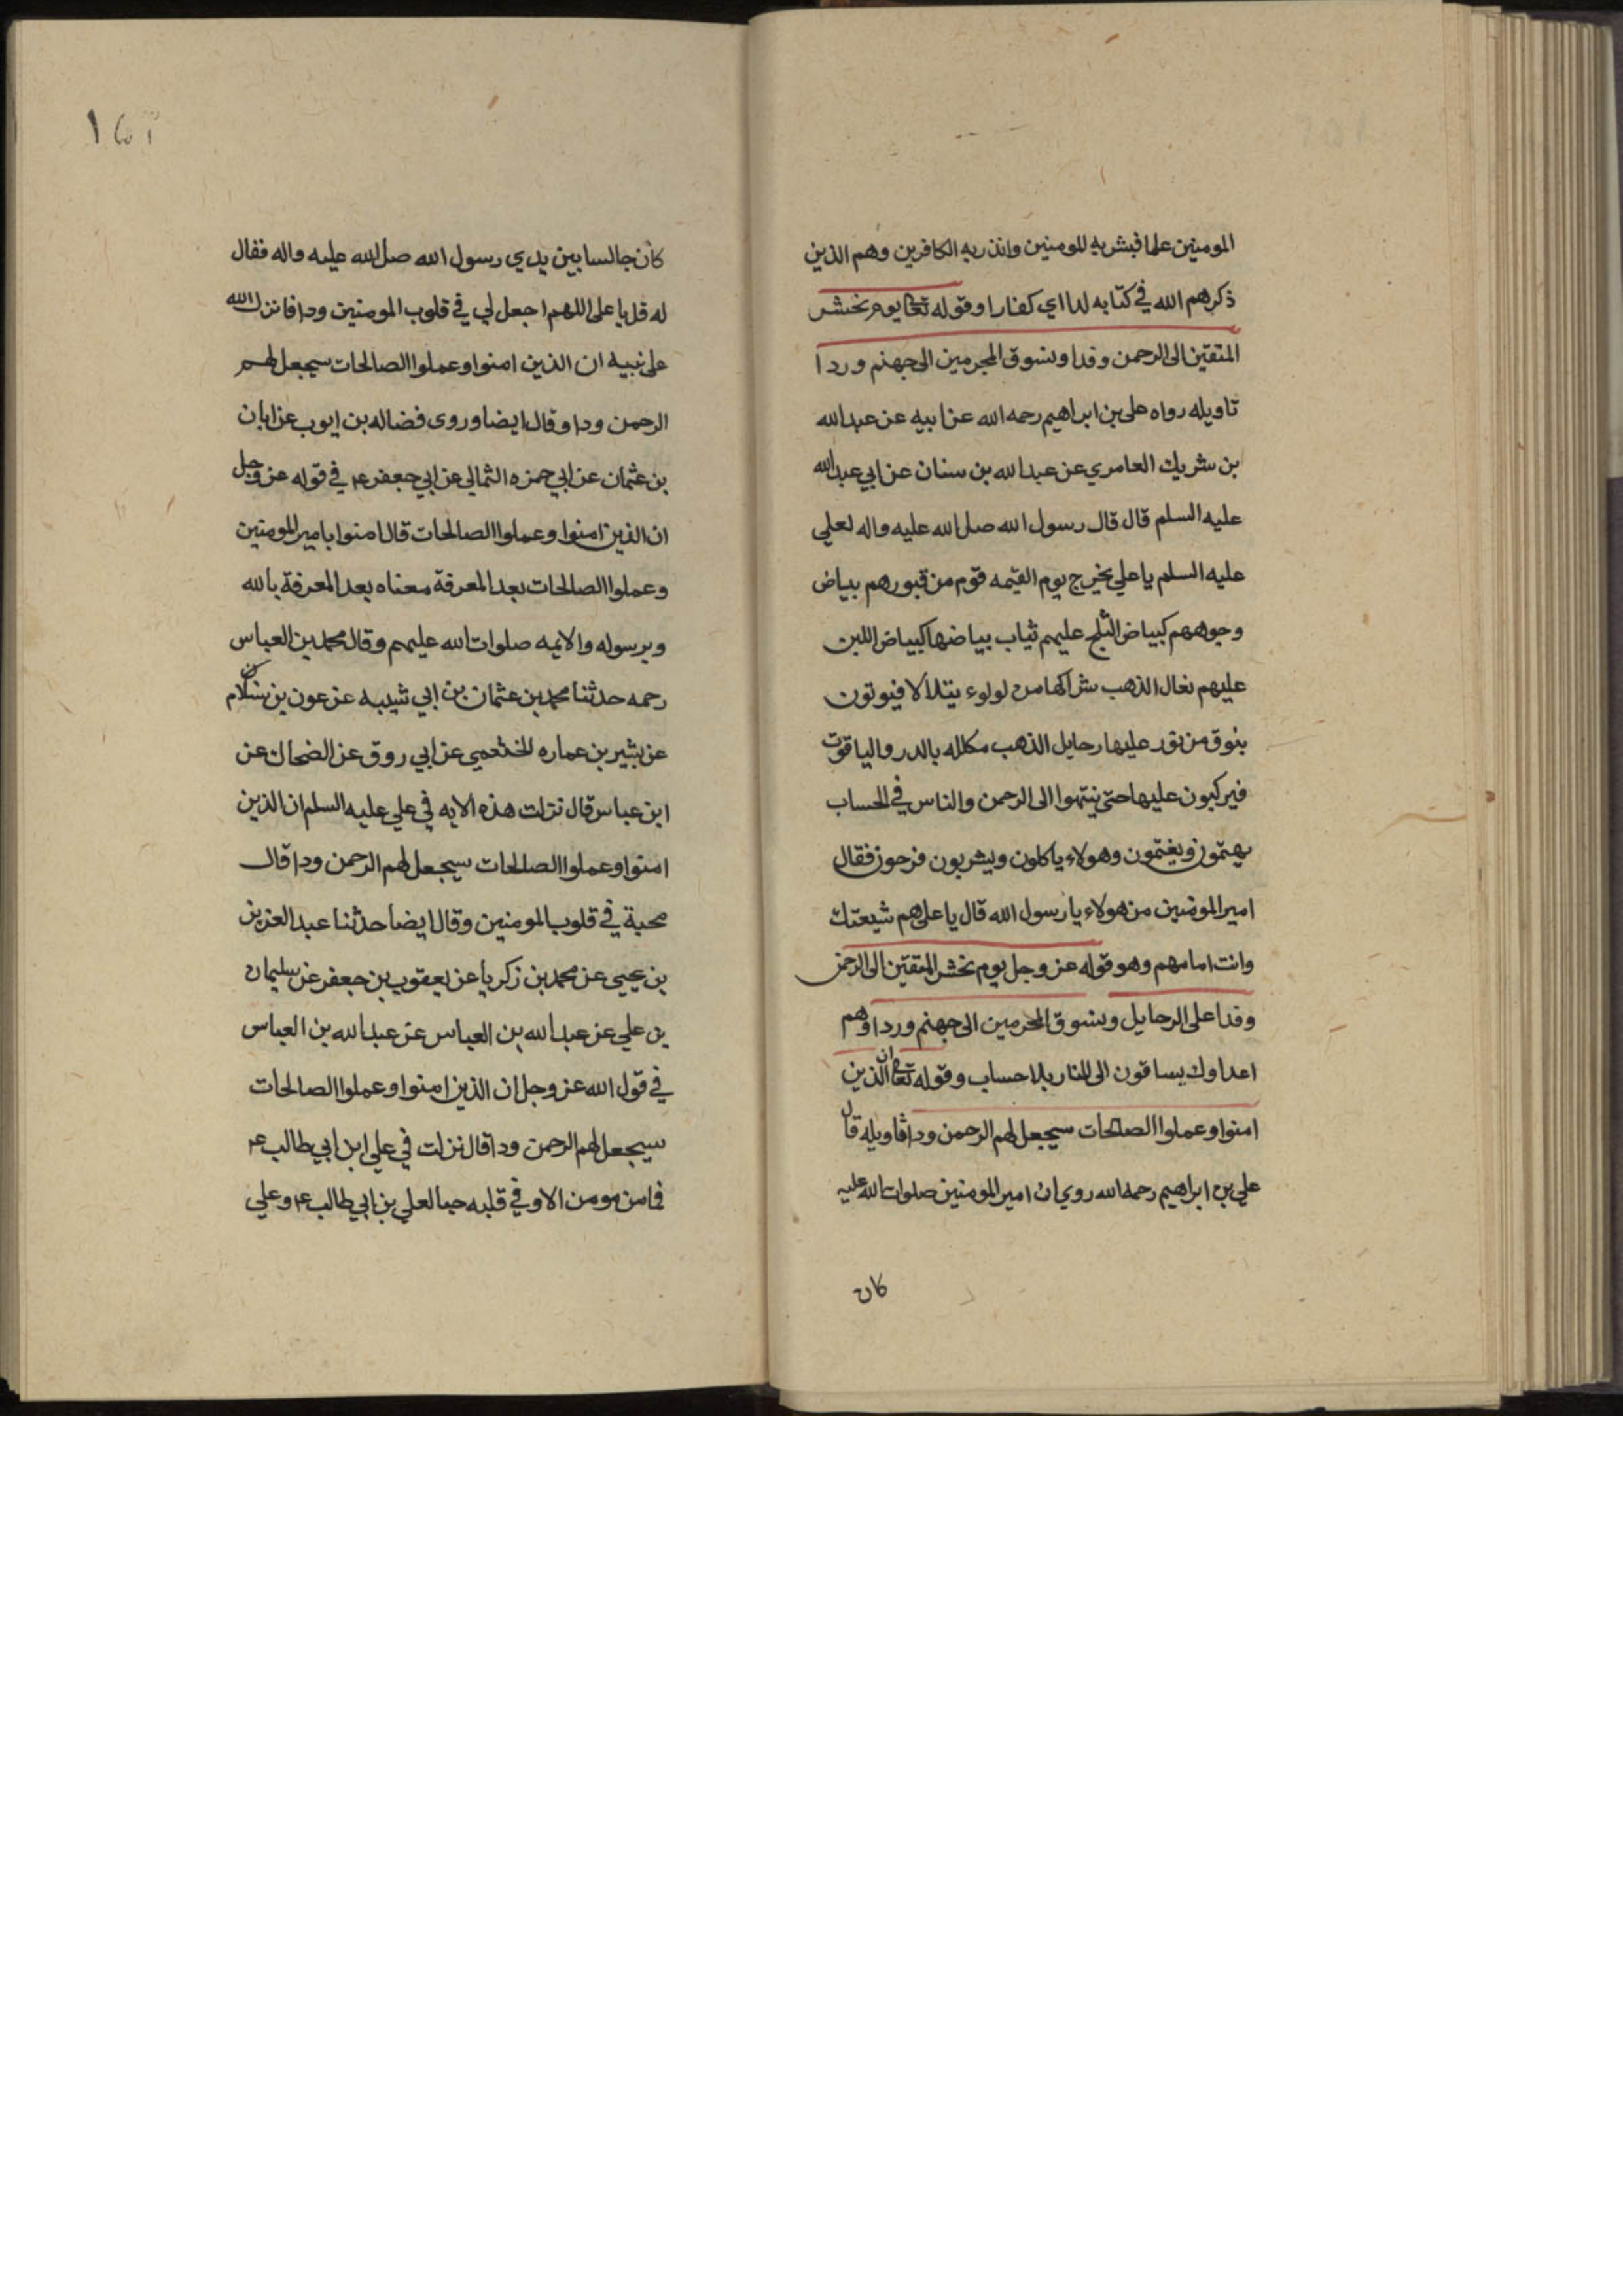 المومنين علما فبشر به المومنين وانذر به الكافرين وهم الذين
ذكرهم الله في كتابه لدا اي كفارا وقوله تعا يوم نحشر
المتقين الى الرحمن وفدا ونسوق المجرمين الى جهنم وردا
تاويله رواه على بن ابراهيم رحمه الله عن ابيه عن عبد الله
بن شريك العامري عن عبد الله بن سنان عن ابي عبد الله
عليه السلم قال قال رسول الله صلى الله عليه واله لعلي
عليه السلم يا علي يخرج يوم القيمه قوم من قبورهم بياض
وجوههم كبياض الثلج عليهم ثياب بياضها كبياض اللبن
عليهم نعال الذهب شراكها من لولوء يتلالا فيوتون
بنوق من نور عليها رحايل الذهب مكلله بالدر والياقوت
فيركبون عليها حتى ينتهوا الى الرحمن والناس في الحساب
يهتمون ويغتمون وهولاء ياكلون ويشربون فرحون فقال
امير المومنين من هولاء يا رسول الله قال يا على هم شيعتك
وانت امامهم وهو قوله عز وجل يوم نحشر المتقين الى الرحمن
وفدا على الرحايل ونسوق المجرمين الى جهنم وردا وهم
اعداوك يساقون الى النار بلا حساب وقوله تعا ان الذين
امنوا وعملوا الصالحات سيجعل لهم الرحمن ودا تاويله قال
علي بن ابراهيم رحمه الله روي ان امير المومنين صلوات الله عليه
كان
١٥٢
كان جالسا بين يدي رسول الله صلى الله عليه واله فقال
له قل يا على اللهم اجعل لي في قلوب المومنين ودا فانزل الله
على نبيه ان الذين امنوا وعملوا الصالحات سيجعل لهم
الرحمن ودا وقال ايضا وروى فضاله بن ايوب عن ابان
بن عثمان عن ابي حمزه الثمالي عن ابي جعفر ع في قوله عز وجل
ان الذين امنوا وعملوا الصالحات قال امنوا بامير المومنين
وعملوا الصالحات بعد المعرفة معناه بعد المعرفة بالله
وبرسوله والايمه صلوات الله عليهم وقال محمد بن العباس
رحمه حدثنا محمد بن عثمان بن ابي شيبه عن عون بن سلام
عن بشير بن عماره الخثعمي عن ابي روق عن الضحاك عن
ابن عباس قال نزلت هذه الايه في علي عليه السلم ان الذين
امنوا وعملوا الصالحات سيجعل لهم الرحمن ودا قال
محبة في قلوب المومنين وقال ايضا حدثنا عبد العزيز
بن يحيى عن محمد بن زكريا عن يعقوب بن جعفر عن سليمان
بن علي عن عبد الله بن العباس عن عبد الله بن العباس
في قول الله عز وجل ان الذين امنوا وعملوا الصالحات
سيجعل لهم الرحمن ودا قال نزلت في علي ابن ابي طالب ع
فما من مومن الا وفي قلبه حبا لعلي بن ابي طالب ع وعلي